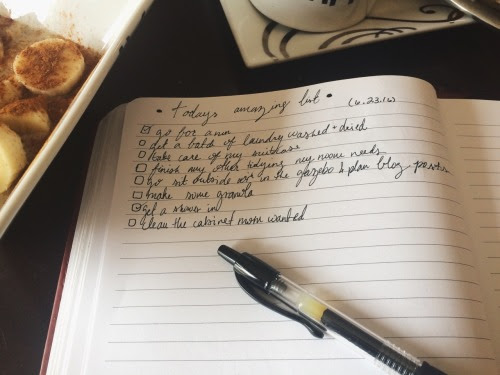 • todays amazing list • (6.23.16)
go for a run
get a batch of laundry washed + dried
take care of my suitcase
finish my other tidying my room needs
go sit outside in the gazebo & plan blog posts
make some granola
get a shower in
clean the cabinet mom wanted